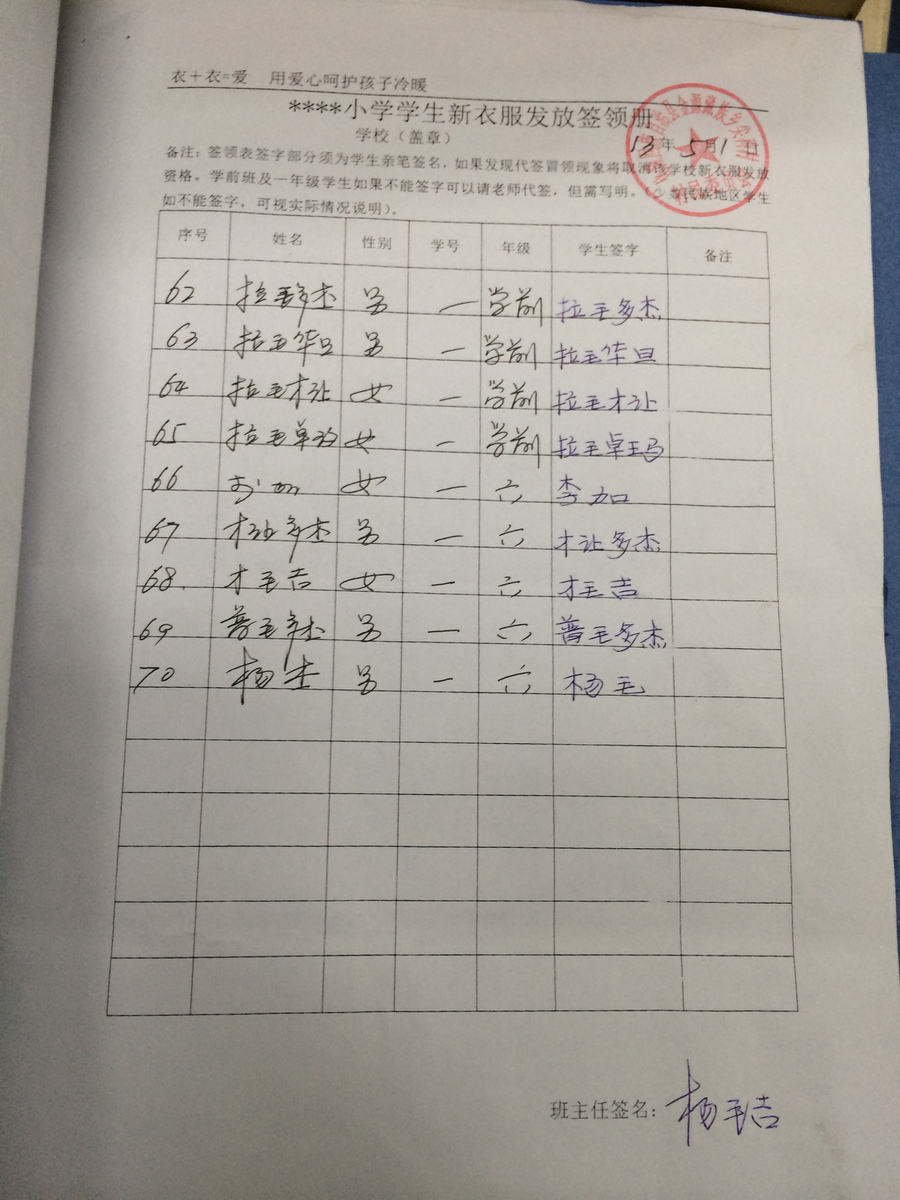 衣+衣=爱 用爱心呵护孩子冷暖
****小学学生新衣服发放签领册
学校（盖章） 13年5月1日
备注：签领表签字部分须为学生亲笔签名，如果发现代签冒领现象将取消该学校新衣服发放
资格。学前班及一年级学生如果不能签字可以请老师代签，但需写明。（少数民族地区学生
如不能签字，可视实际情况说明）。
序号 姓名 性别 学号 年级 学生签字 备注
62 拉毛多杰 男 一 学前 拉毛多杰
63 拉毛华旦 男 一 学前 拉毛华旦
64 拉毛才让 女 一 学前 拉毛才让
65 拉毛卓玛 女 一 学前 拉毛卓玛
66 女 一 六 李加
67 才让多杰 男 一 六 才让多杰
68. 才毛吉 女 一 六 才毛吉
69 普毛多杰 男 一 六 普毛多杰
70 杨 男 一 六 杨毛
班主任签名：杨毛吉